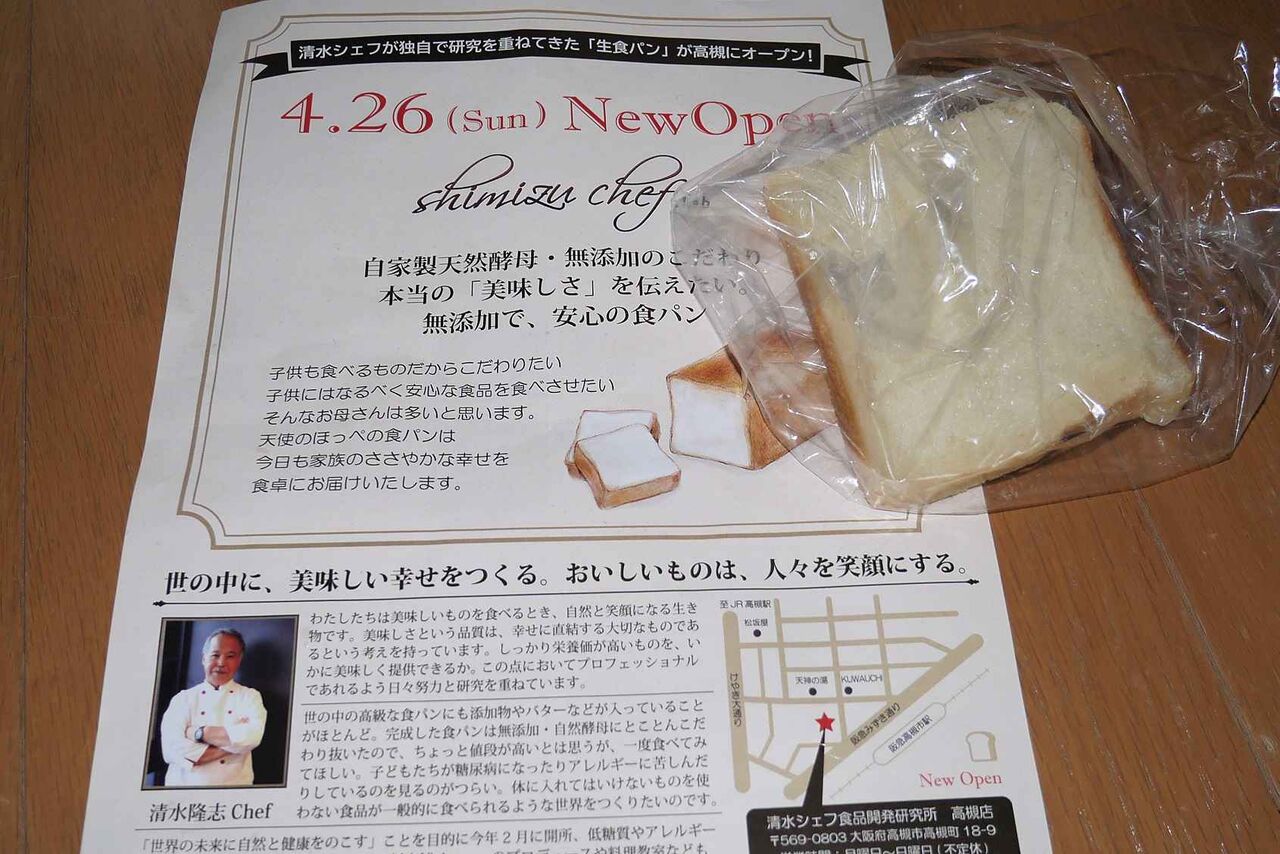 清水シェフが独自で研究を重ねてきた「生食パン」が高槻にオープン!
4.26(Sun) NewOpen
shimizu chef
自家製天然酵母・無添加のこだわり
本当の「美味しさ」を伝えたい。
無添加で、安心の食パン
子供も食べるものだからこだわりたい
子供にはなるべく安心な食品を食べさせたい
そんなお母さんは多いと思います。
天使のほっぺの食パンは
今日も家族のささやかな幸せを
食卓にお届けいたします。
世の中に、美味しい幸せをつくる。おいしいものは、人々を笑顔にする。
わたしたちは美味しいものを食べるとき、自然と笑顔になる生き
物です。美味しさという品質は、幸せに直結する大切なものであ
るという考えを持っています。しっかり栄養価が高いものを、い
かに美味しく提供できるか。この点においてプロフェッショナル
であれるよう日々努力と研究を重ねています。
世の中の高級な食パンにも添加物やバターなどが入っていること
がほとんど。完成した食パンは無添加・自然酵母にとことんこだ
わり抜いたので、ちょっと値段が高いとは思うが、一度食べてみ
てほしい。子どもたちが糖尿病になったりアレルギーに苦しんだ
りしているのを見るのがつらい。体に入れてはいけないものを使
わない食品が一般的に食べられるような世界をつくりたいのです。
清水隆志 Chef
「世界の未来に自然と健康をのこす」ことを目的に今年2月に開所、低糖質やアレルギー
至JR高槻駅
松坂屋
けやき大通り
天神の湯
KUWAUCHI
阪急みずき通り
阪急高槻市駅
New Open
清水シェフ食品開発研究所 高槻店
〒569-0803 大阪府高槻市高槻町 18-9
営業時間:月曜日〜日曜日(不定休)